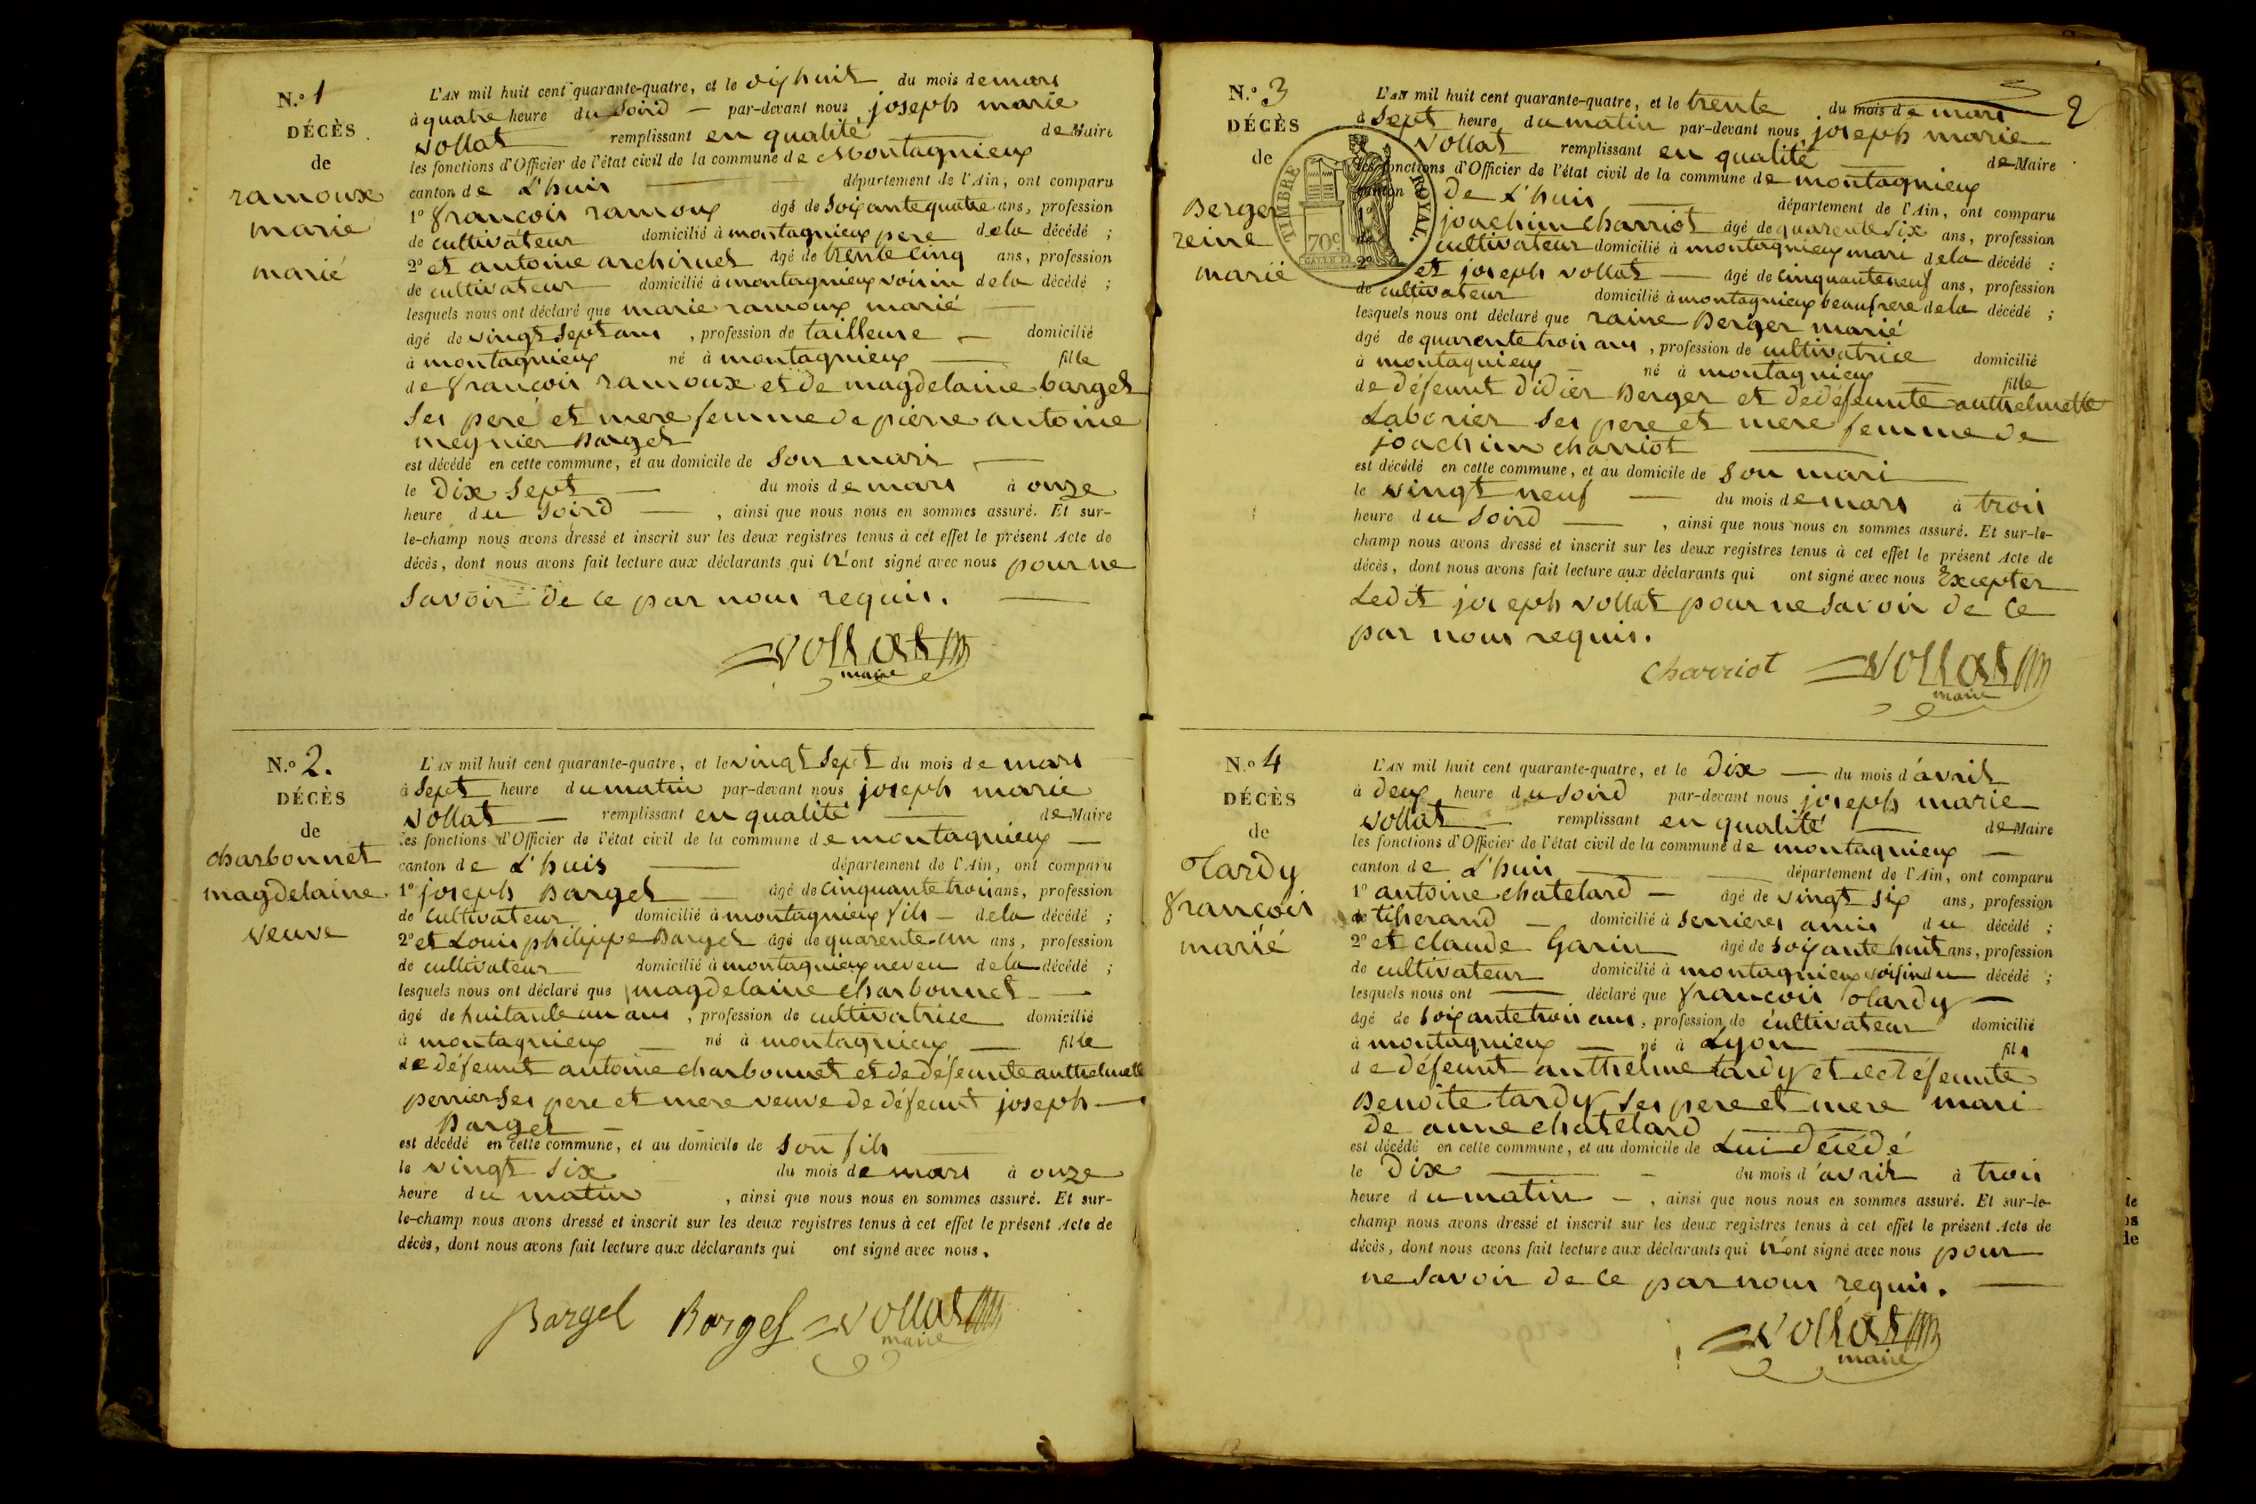 N.º 1
DÉCÈS
de
ramoux
marie
marié
L'AN mil huit cent quarante-quatre, et le dix huit du mois de mars
à quatre heure du soird — par-devant nous joseph marie
vollat remplissant en qualité — de Maire
les fonctions d'Officier de l'état civil de la commune de Montagnieux
canton de L'huis — département de l'Ain, ont comparu
1º françois ramoux âgé de soixante quatre ans, profession
de cultivateur domicilié à montagnieux pere de la décédé ;
2º et antoine archinet âgé de trente cinq ans, profession
de cultivateur domicilié à montagnieux voisin de la décédé ;
lesquels nous ont déclaré que marie ramoux marié —
âgé de vingt sept ans, profession de tailleuse — domicilié
à montagnieux né à montagnieux — fille
de françois ramoux et de magdelaine barget
ses pere et mere femme de pierre antoine
meynier Barget
est décédé en cette commune, et au domicile de son mari —
le Dix sept — du mois de mars à onze
heure du soird —, ainsi que nous nous en sommes assuré. Et sur-
le-champ nous avons dressé et inscrit sur les deux registres tenus à cet effet le présent Acte de
décès, dont nous avons fait lecture aux déclarants qui n'ont signé avec nous pour ne
savoir de ce par nous requis. —
vollat
maire
N.º 2.
DÉCÈS
de
charbonnet
magdelaine
veuve
L'AN mil huit cent quarante-quatre, et le vingt sept du mois de mars
à sept heure du matin par-devant nous joseph marie
vollat — remplissant en qualité — de Maire
les fonctions d'Officier de l'état civil de la commune de montagnieux —
canton de L'huis — département de l'Ain, ont comparu
1º joseph Barget — âgé de cinquante trois ans, profession
de cultivateur domicilié à montagnieux fils — de la décédé ;
2º et Louis philippe Barget âgé de quarente un ans, profession
de cultivateur domicilié à montagnieux neveu de la décédé ;
lesquels nous ont déclaré que magdelaine charbonnet —
âgé de huitante un ans, profession de cultivatrice domicilié
à montagnieux — né à montagnieux — fille
de défeunt antoine charbonnet et de défeunte anthelmette
perrier ses pere et mere veuve de défeunt joseph —
Barget —
est décédé en cette commune, et au domicile de son fils —
le vingt six du mois de mars à onze
heure du matin, ainsi que nous nous en sommes assuré. Et sur-
le-champ nous avons dressé et inscrit sur les deux registres tenus à cet effet le présent Acte de
décès, dont nous avons fait lecture aux déclarants qui ont signé avec nous.
Bargel Barget vollat
maire
2
N.º 3
DÉCÈS
de
Berger
reine
marié
TIMBRE ROYAL.
70c
L'AN mil huit cent quarante-quatre, et le trente du mois de mars
à sept heure du matin par-devant nous joseph marie
vollat remplissant en qualité — de Maire
les fonctions d'Officier de l'état civil de la commune de montagnieux
canton de L'huis — département de l'Ain, ont comparu
1º joachim charriot âgé de quarente six ans, profession
de cultivateur domicilié à montagnieux mari de la décédé ;
2º et joseph vollat — âgé de cinquante neuf ans, profession
de cultivateur domicilié à montagnieux beaufrere de la décédé ;
lesquels nous ont déclaré que raine Berger marié
âgé de quarente trois ans, profession de cultivatrice domicilié
à montagnieux — né à montagnieux — fille
de défeunt didier Berger et de défeunte anthelmette
Laborier ses pere et mere femme de
joachim charriot —
est décédé en cette commune, et au domicile de son mari —
le vingt neuf — du mois de mars à trois
heure du soird —, ainsi que nous nous en sommes assuré. Et sur-le-
champ nous avons dressé et inscrit sur les deux registres tenus à cet effet le présent Acte de
décès, dont nous avons fait lecture aux déclarants qui ont signé avec nous Excepter
Ledit joseph vollat pour ne savoir de ce
par nous requis.
Charriot vollat
maire
N.º 4
DÉCÈS
de
tardy
françois
marié
L'AN mil huit cent quarante-quatre, et le Dix — du mois d'avril
à deux heure du soird par-devant nous joseph marie
vollat — remplissant en qualité — de Maire
les fonctions d'Officier de l'état civil de la commune de montagnieux —
canton de L'huis — département de l'Ain, ont comparu
1º antoine chatelard — âgé de vingt six ans, profession
de tiserand — domicilié à serrieres amis du décédé ;
2º et claude Garin âgé de soixante huit ans, profession
de cultivateur domicilié à montagnieux voisin du décédé ;
lesquels nous ont — déclaré que françois tardy —
âgé de soixante trois ans, profession de cultivateur domicilié
à montagnieux — né à Lyon — fils
de défeunt anthelme tardy et de défeunte
Benoite tardy ses pere et mere mari
de anne chatelard
est décédé en cette commune, et au domicile de Lui décédé
le Dix — du mois d'avril à trois
heure du matin —, ainsi que nous nous en sommes assuré. Et sur-le-
champ nous avons dressé et inscrit sur les deux registres tenus à cet effet le présent Acte de
décès, dont nous avons fait lecture aux déclarants qui n'ont signé avec nous pour
ne savoir de ce par nous requis. —
vollat
maire